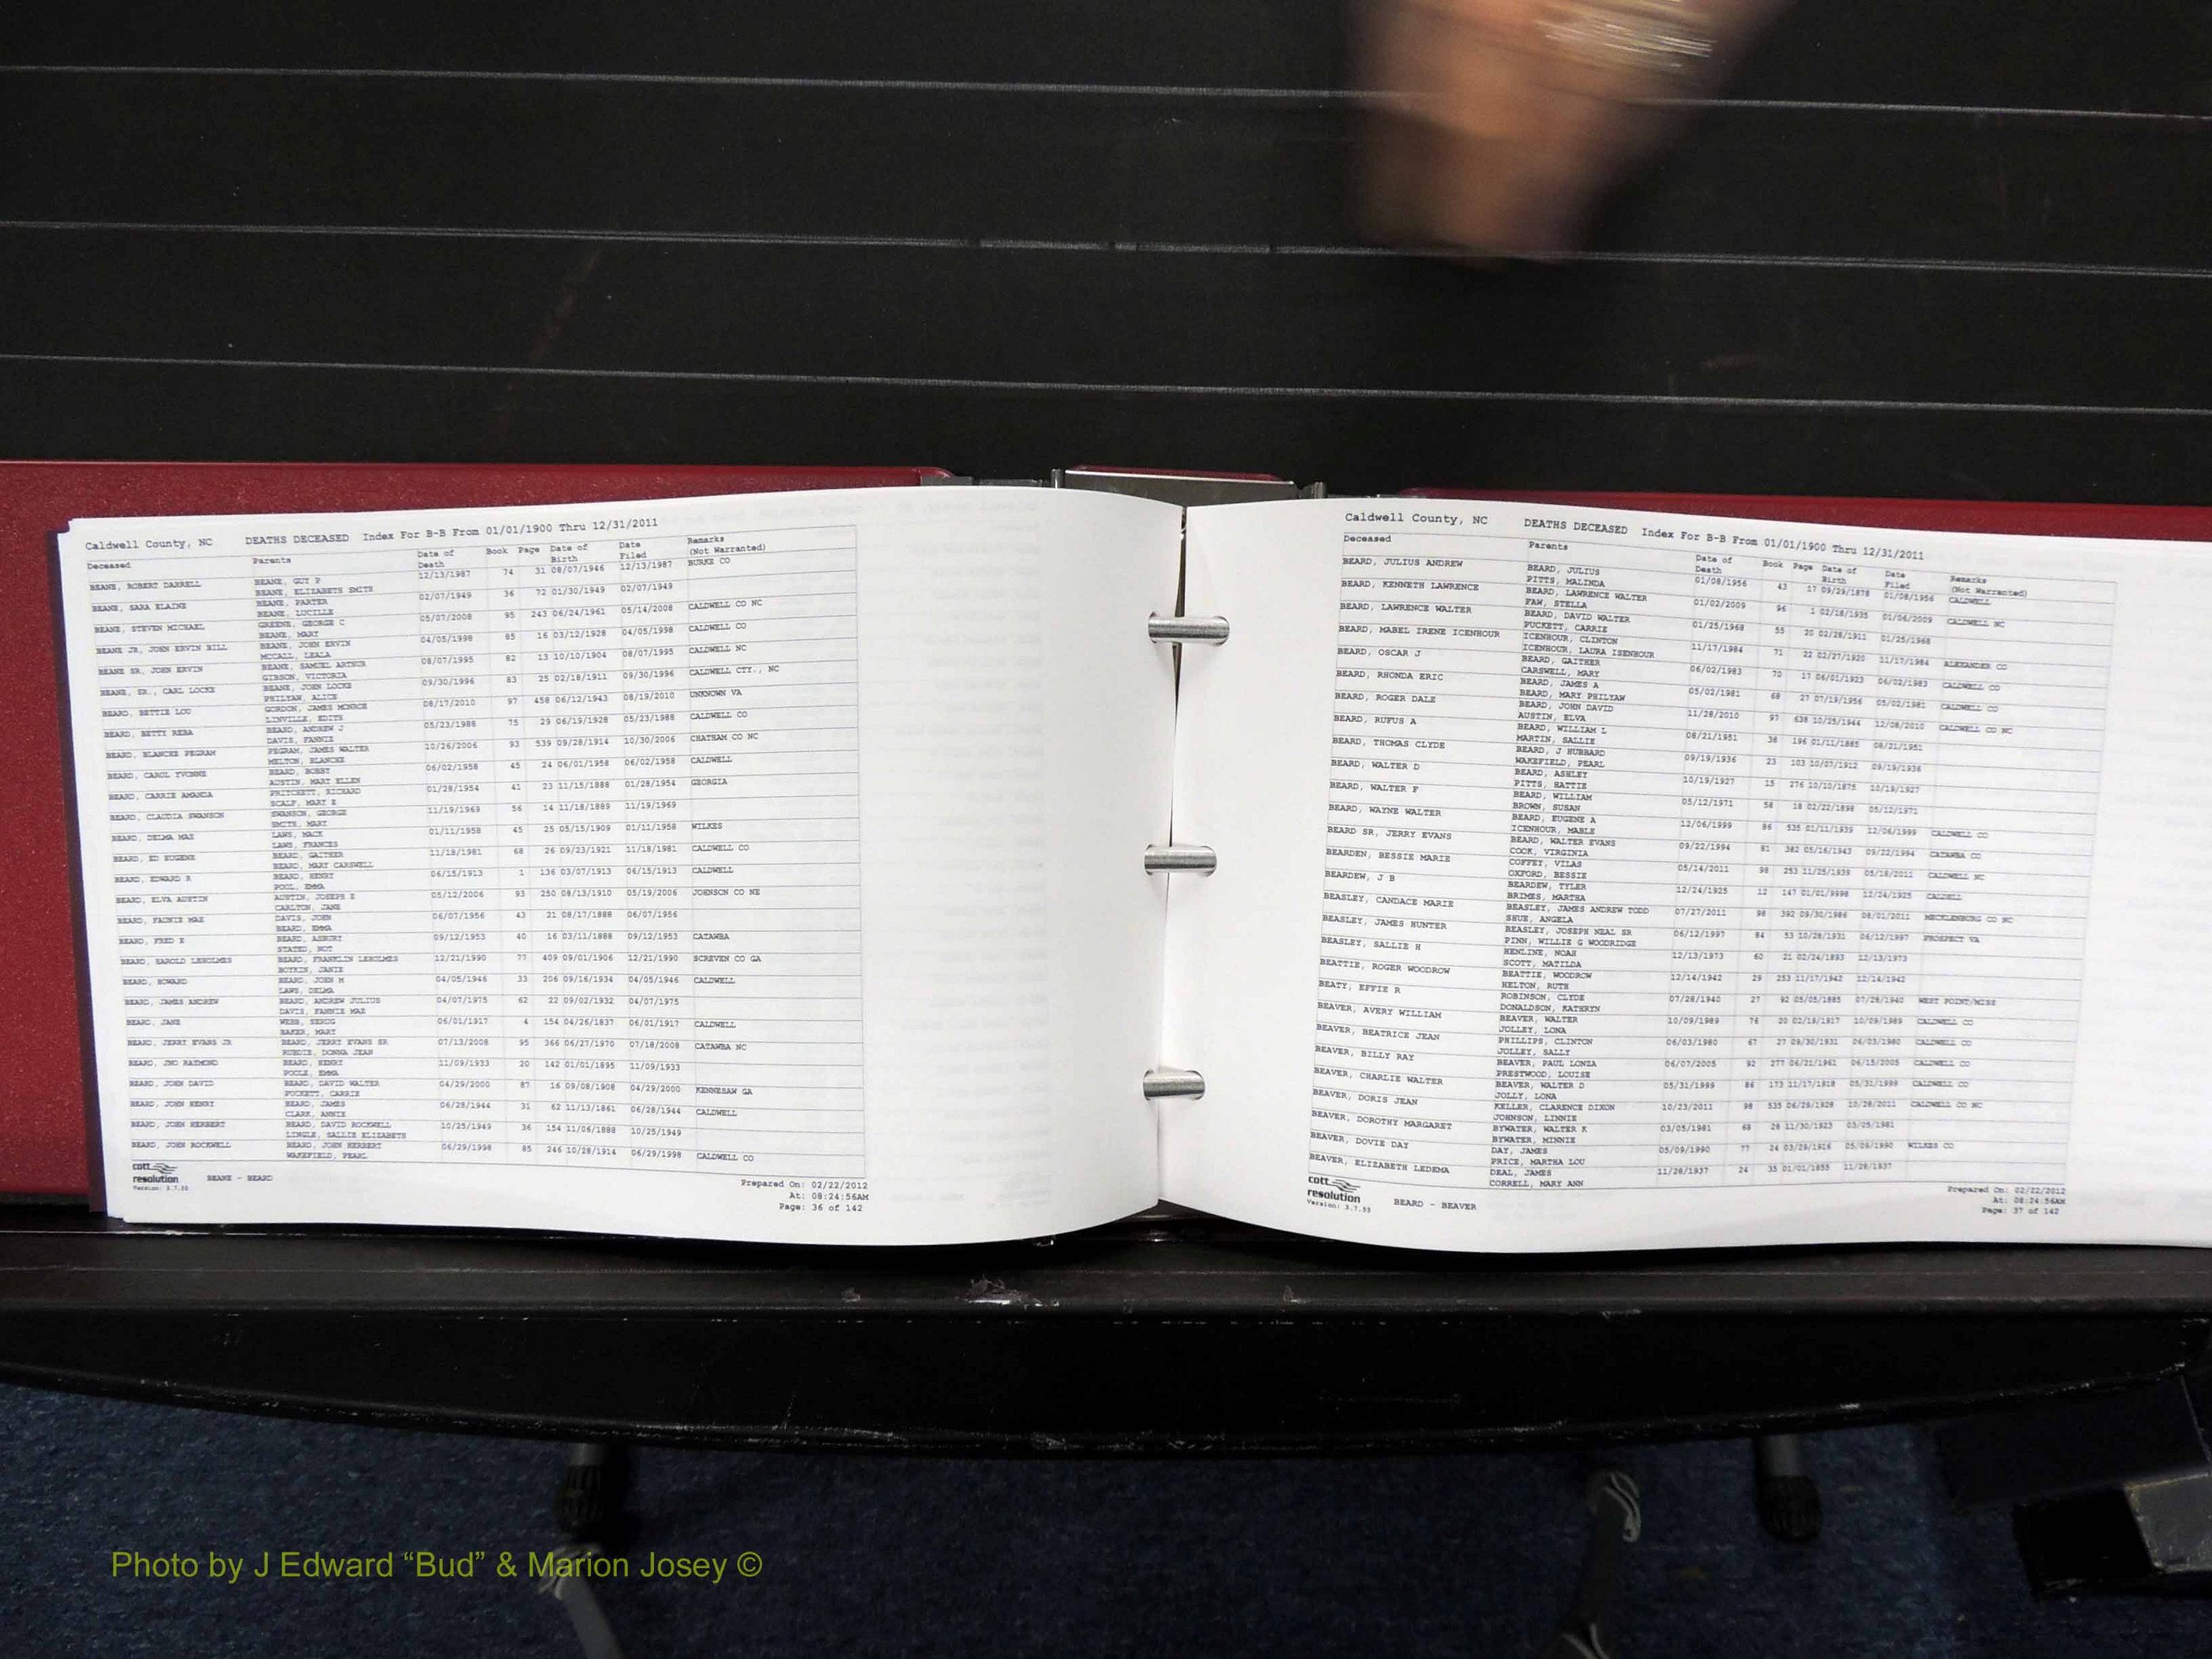 Caldwell County, NC DEATHS DECEASED Index For B-B From 01/01/1900 Thru 12/31/2011
Deceased Parents Date of Death Book Page Date of Birth Date Filed Remarks (Not Warranted)
BEANE, ROBERT DARRELL BEANE, GUY P 12/13/1987 74 31 08/07/1946 12/13/1987 BURKE CO
BEANE, ELIZABETH SMITH
BEANE, SARA ELAINE BEANE, PARTER 02/07/1949 36 72 01/30/1949 02/07/1949
BEANE, LUCILLE
BEANE, STEVEN MICHAEL GREENE, GEORGE C 05/07/2008 95 243 06/24/1961 05/14/2008 CALDWELL CO NC
BEANE, MARY
BEANE JR, JOHN ERVIN BILL BEANE, JOHN ERVIN 04/05/1998 85 16 03/12/1928 04/05/1998 CALDWELL CO
MCCALL, LEALA
BEANE SR, JOHN ERVIN BEANE, SAMUEL ARTHUR 08/07/1995 82 13 10/10/1904 08/07/1995 CALDWELL NC
GIBSON, VICTORIA
BEANE, SR., CARL LOCKE BEANE, JOHN LOCKE 09/30/1996 83 25 02/18/1911 09/30/1996 CALDWELL CTY., NC
PHILYAW, ALICE
BEARD, BETTIE LOU GORDON, JAMES MONROE 08/17/2010 97 458 06/12/1943 08/19/2010 UNKNOWN VA
LINVILLE, EDITH
BEARD, BETTY REBA BEARD, ANDREW J 05/23/1988 75 29 06/19/1928 05/23/1988 CALDWELL CO
DAVIS, FANNIE
BEARD, BLANCHE PEGRAM PEGRAM, JAMES WALTER 10/26/2006 93 539 09/28/1914 10/30/2006 CHATHAM CO NC
MELTON, BLANCHE
BEARD, CAROL YVONNE BEARD, BOBBY 06/02/1958 45 24 06/01/1958 06/02/1958 CALDWELL
AUSTIN, MARY ELLEN
BEARD, CARRIE AMANDA PRITCHETT, RICHARD 01/28/1954 41 23 11/15/1888 01/28/1954 GEORGIA
SCALF, MARY E
BEARD, CLAUDIA SWANSON SWANSON, GEORGE 11/19/1969 56 14 11/18/1889 11/19/1969
SMITH, MARY
BEARD, DELMA MAE LAWS, MACK 01/11/1958 45 25 05/15/1909 01/11/1958 WILKES
LAWS, FRANCES
BEARD, ED EUGENE BEARD, GAITHER 11/18/1981 68 26 09/23/1921 11/18/1981 CALDWELL CO
BEARD, MARY CARSWELL
BEARD, EDWARD R BEARD, HENRY 06/15/1913 1 136 03/07/1913 06/15/1913 CALDWELL
POOL, EMMA
BEARD, ELVA AUSTIN AUSTIN, JOSEPH E 05/12/2006 93 250 08/13/1910 05/19/2006 JOHNSON CO NE
CARLTON, JANE
BEARD, FAUNIE MAE DAVIS, JOHN 06/07/1956 43 21 08/17/1888 06/07/1956
BEARD, EMMA
BEARD, FRED E BEARD, ASBURY 09/12/1953 40 16 03/11/1888 09/12/1953 CATAWBA
STATED, NOT
BEARD, HAROLD LEHOLMES BEARD, FRANKLIN LEHOLMES 12/21/1990 77 409 09/01/1906 12/21/1990 SCREVEN CO GA
BOTKIN, JANIE
BEARD, HOWARD BEARD, JOHN M 04/05/1946 33 206 09/16/1934 04/05/1946 CALDWELL
LAWS, DELMA
BEARD, JAMES ANDREW BEARD, ANDREW JULIUS 04/07/1975 62 22 09/02/1932 04/07/1975
DAVIS, FANNIE MAE
BEARD, JANE WEBB, 06/01/1917 4 154 04/26/1837 06/01/1917 CALDWELL
BAKER, MARY
BEARD, JERRY EVANS JR BEARD, JERRY EVANS SR 07/13/2008 95 366 06/27/1970 07/18/2008 CATAWBA NC
DONNA JEAN
BEARD, JNO RAYMOND BEARD, HENRY 11/09/1933 20 142 01/01/1895 11/09/1933
POOLE, EMMA
BEARD, JOHN DAVID BEARD, DAVID WALTER 04/29/2000 87 16 09/08/1908 04/29/2000 KENNESAW GA
PUCKETT, CARRIE
BEARD, JOHN HENRY BEARD, JAMES 06/28/1944 31 62 11/13/1861 06/28/1944 CALDWELL
CLARK, ANNIE
BEARD, JOHN HERBERT BEARD, DAVID ROCKWELL 10/25/1949 36 154 11/06/1888 10/25/1949
LINGLE, SALLIE ELIZABETH
BEARD, JOHN ROCKWELL BEARD, JOHN HERBERT 06/29/1998 85 246 10/28/1914 06/29/1998 CALDWELL CO
WAKEFIELD, PEARL
cott
resolution BEANE - BEARD
Version: 3.7.55
Prepared On: 02/22/2012
At: 08:24:56AM
Page: 36 of 142
Caldwell County, NC DEATHS DECEASED Index For B-B From 01/01/1900 Thru 12/31/2011
Deceased Parents Date of Death Book Page Date of Birth Date Filed Remarks (Not Warranted)
BEARD, JULIUS ANDREW BEARD, JULIUS 01/08/1956 43 17 09/29/1878 01/08/1956 CALDWELL
PITTS, MALINDA
BEARD, KENNETH LAWRENCE BEARD, LAWRENCE WALTER 01/02/2009 96 1 02/18/1935 01/06/2009 CALDWELL NC
FAW, STELLA
BEARD, LAWRENCE WALTER BEARD, DAVID WALTER 01/25/1968 55 20 02/28/1911 01/25/1968
PUCKETT, CARRIE
BEARD, MABEL IRENE ICENHOUR ICENHOUR, CLINTON 11/17/1984 71 22 02/27/1920 11/17/1984 ALEXANDER CO
ICENHOUR, LAURA ISENHOUR
BEARD, OSCAR J BEARD, GAITHER 06/02/1983 70 17 06/01/1923 06/02/1983 CALDWELL CO
CARSWELL, MARY
BEARD, RHONDA ERIC BEARD, JAMES A 05/02/1981 68 27 07/19/1956 05/02/1981 CALDWELL CO
BEARD, MARY PHILYAW
BEARD, ROGER DALE BEARD, JOHN DAVID 11/28/2010 97 638 10/25/1944 12/08/2010 CALDWELL CO NC
AUSTIN, ELVA
BEARD, RUFUS A BEARD, WILLIAM L 08/21/1951 38 196 01/11/1885 08/21/1951
MARTIN, SALLIE
BEARD, THOMAS CLYDE BEARD, J HUBBARD 09/19/1936 23 103 10/07/1912 09/19/1936
WAKEFIELD, PEARL
BEARD, WALTER D BEARD, ASHLEY 10/19/1927 15 276 10/10/1875 10/19/1927
PITTS, HATTIE
BEARD, WALTER F BEARD, WILLIAM 05/12/1971 58 18 02/22/1898 05/12/1971
BROWN, SUSAN
BEARD, WAYNE WALTER BEARD, EUGENE A 12/06/1999 86 535 01/11/1939 12/06/1999 CALDWELL CO
ICENHOUR, MABLE
BEARD SR, JERRY EVANS BEARD, WALTER EVANS 09/22/1994 81 382 05/16/1943 09/22/1994 CATAWBA CO
COOK, VIRGINIA
BEARDEN, BESSIE MARIE COFFEY, VILAS 05/14/2011 98 253 11/25/1939 05/18/2011 CALDWELL NC
OXFORD, BESSIE
BEARDEW, J B BEARDEW, TYLER 12/24/1925 12 147 01/01/9998 12/24/1925 CALDELL
BRIMES, MARTHA
BEASLEY, CANDACE MARIE BEASLEY, JAMES ANDREW TODD 07/27/2011 98 392 09/30/1986 08/01/2011 MECKLENBURG CO NC
SHUE, ANGELA
BEASLEY, JAMES HUNTER BEASLEY, JOSEPH NEAL SR 06/12/1997 84 53 10/28/1931 06/12/1997 PROSPECT VA
PINN, WILLIE G WOODRIDGE
BEASLEY, SALLIE H HENLINE, NOAH 12/13/1973 60 21 02/24/1893 12/13/1973
SCOTT, MATILDA
BEATTIE, ROGER WOODROW BEATTIE, WOODROW 12/14/1942 29 253 11/17/1942 12/14/1942
HELTON, RUTH
BEATY, EFFIE R ROBINSON, CLYDE 07/28/1940 27 92 05/05/1885 07/28/1940 WEST POINT/MISS
DONALDSON, KATHRYN
BEAVER, AVERY WILLIAM BEAVER, WALTER 10/09/1989 76 20 02/19/1917 10/09/1989 CALDWELL CO
JOLLEY, LONA
BEAVER, BEATRICE JEAN PHILLIPS, CLINTON 06/03/1980 67 27 09/30/1931 06/03/1980 CALDWELL CO
JOLLEY, SALLY
BEAVER, BILLY RAY BEAVER, PAUL LONZA 06/07/2005 92 277 06/21/1961 06/15/2005 CALDWELL CO
PRESTWOOD, LOUISE
BEAVER, CHARLIE WALTER BEAVER, WALTER D 05/31/1999 86 173 11/17/1918 05/31/1999 CALDWELL CO
JOLLY, LONA
BEAVER, DORIS JEAN KELLER, CLARENCE DIXON 10/23/2011 98 535 06/29/1928 10/28/2011 CALDWELL CO NC
JOHNSON, LINNIE
BEAVER, DOROTHY MARGARET BYWATER, WALTER K 03/05/1981 68 28 11/30/1923 03/05/1981
BYWATER, MINNIE
BEAVER, DOVIE DAY DAY, JAMES 05/09/1990 77 24 03/29/1916 05/09/1990 WILKES CO
PRICE, MARTHA LOU
BEAVER, ELIZABETH LEDEMA DEAL, JAMES 11/28/1937 24 35 01/01/1855 11/28/1937
CORRELL, MARY ANN
cott
resolution BEARD - BEAVER
Version: 3.7.55
Prepared On: 02/22/2012
At: 08:24:56AM
Page: 37 of 142
Photo by J Edward “Bud” & Marion Josey ©